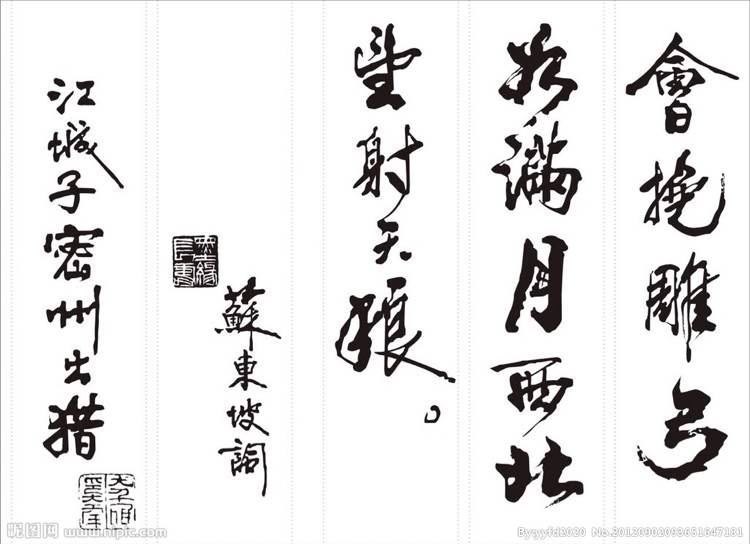 會挽雕弓
如滿月西北
望射天狼。
蘇東坡詞
江城子密州出猎
昵图网 www.nipic.com
By:qyyfd2020 No.20120902093651647181